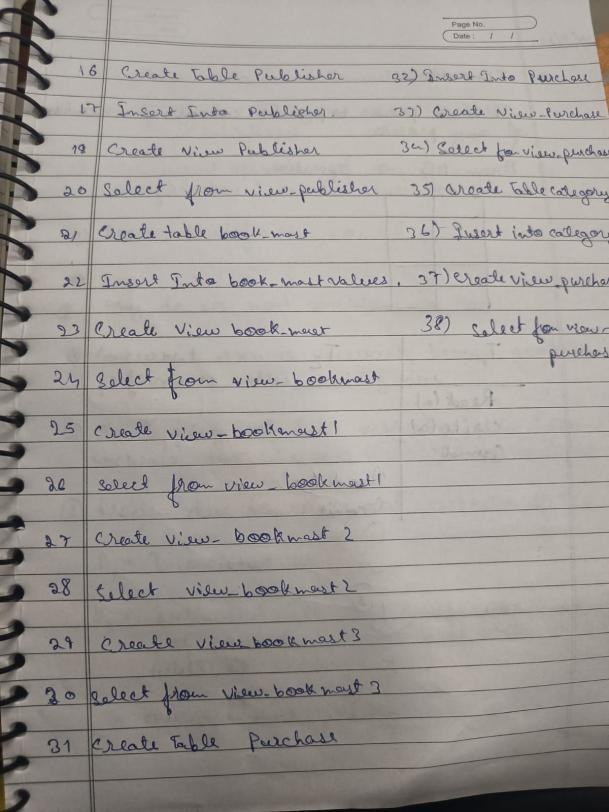 Page No.
Date: / /
16 Create Table Publisher
17 Insert Into Publisher.
18 Create View Publisher
20 Select from view_publisher
21 Create table book_mast
22 Insert Into book_mast values.
23 Create View book_mast
24 Select from view_bookmast
25 Create view_bookmast1
26 Select from view_bookmast1
27 Create view_bookmast 2
28 Select view_bookmast2
29 Create view_bookmast3
30 Select from view_bookmast 3
31 Create Table Purchase
32) Insert Into Purchase
33) Create View_Purchase
34) Select from view_purchas
35) Create Table category
36) Insert into category
37) Create view_purcha
38) Select from view_
purchas